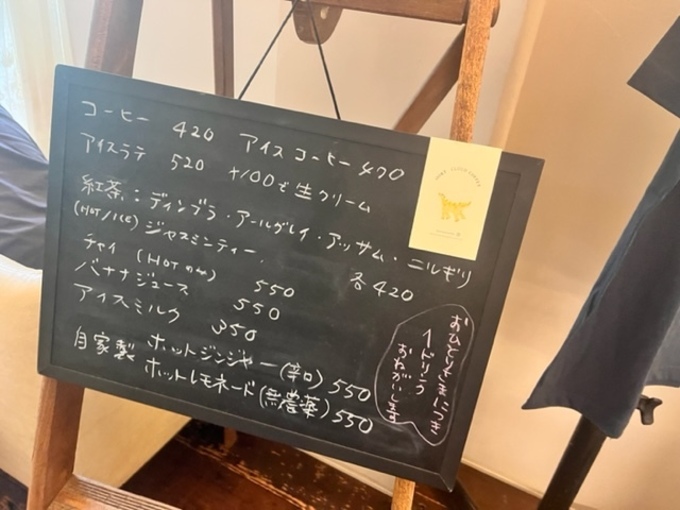 コーヒー 420 アイスコーヒー 470
アイスラテ 520 +100で生クリーム
紅茶：ディンブラ・アールグレイ・アッサム・ニルギリ
(HOT/ICE) ジャスミンティー 各420
チャイ (HOTのみ) 550
バナナジュース 550
アイスミルク 350
自家製 ホットジンジャー(辛口) 550
ホットレモネード(無農薬) 550
おひとりさまにつき
1ドリンク
おねがいします